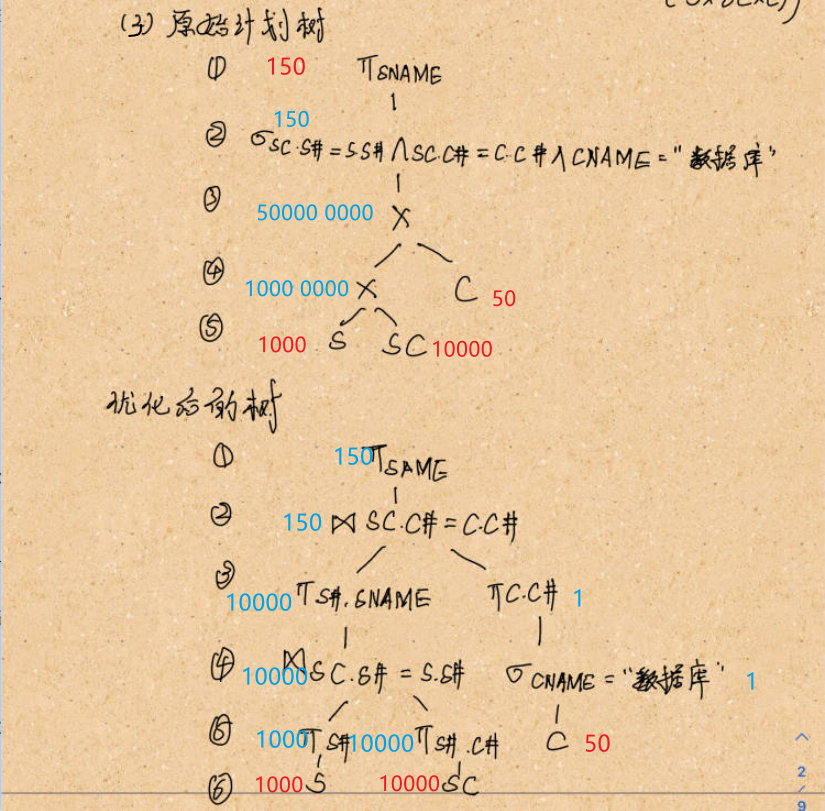 (3) 原始计划树
① 150 πSNAME
150
② σSC.S#=S.S#∧SC.C#=C.C#∧CNAME="数据库"
③ 50000 0000 ×
④ 1000 0000 × C 50
⑤ 1000 S SC 10000
优化后的树
① 150 πSAME
② 150 ⋈ SC.C#=C.C#
③ 10000 πS#.SNAME πC.C# 1
④ 10000 ⋈SC.S#=S.S# σCNAME="数据库" 1
⑤ 1000 πS# 10000 πS#.C# C 50
⑥ 1000 S 10000 SC
2
/
9